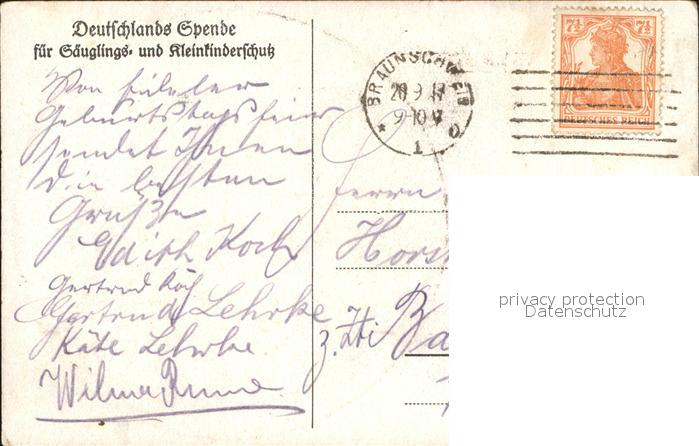 Deutschlands Spende
für Säuglings- und Kleinkinderschutz
Von fideler
Geburtstagsfeier
sendet Ihnen
die besten
Grüße
Edith Koch
Gertrud Koch
Gertrud Lehrke
Käte Lehrke
Wilma
BRAUNSCHWEIG
20 9 17
9-10 V
* 1
7½ 7½
DEUTSCHES REICH
Herrn
Horst
z. Zt.
Ba
privacy protection
Datenschutz